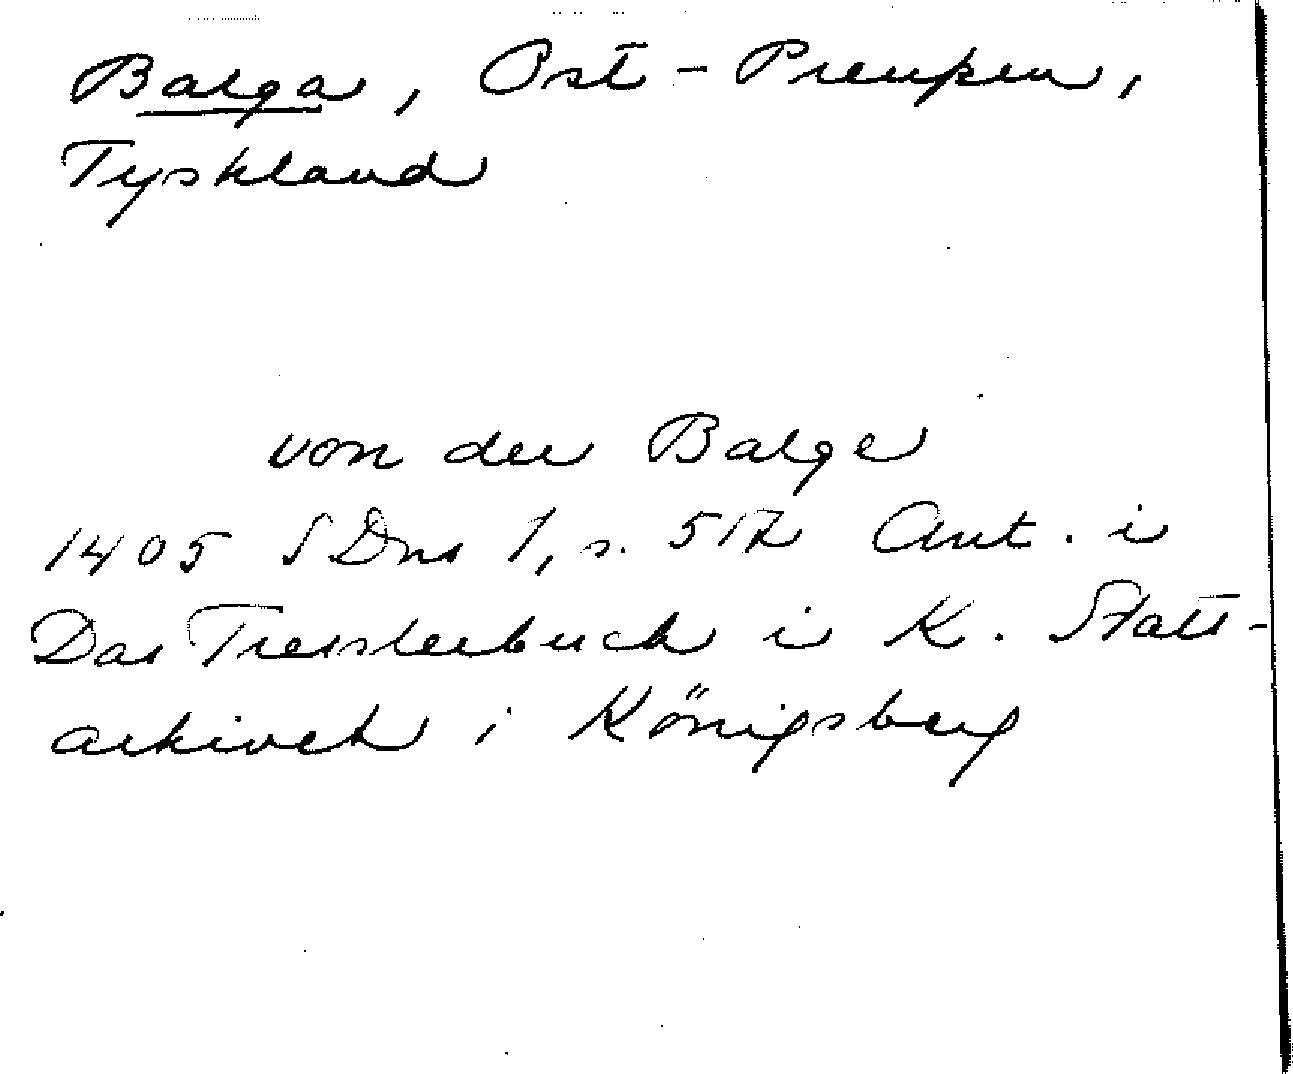 Balga, Ost-Preußen,
Tyskland
von der Balge
1405 SDns 1, s. 517 Ant. i
Das Tresslerbuch i K. Stats-
arkivet i Königsberg